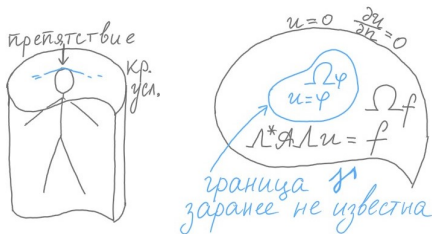 препятствие
кр.
усл.
u = 0
∂u/∂n = 0
Ω_φ
u = φ
Ω_f
Λ*𝒜Λu = f
граница γ
заранее не известна